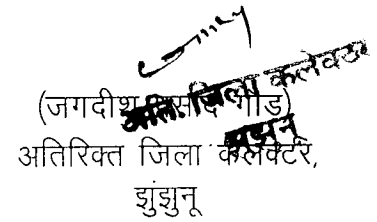 अति. जिला कलेक्टर
झुंझुनू
(जगदीश प्रसाद गौड)
अतिरिक्त जिला कलेक्टर,
झुंझुनू